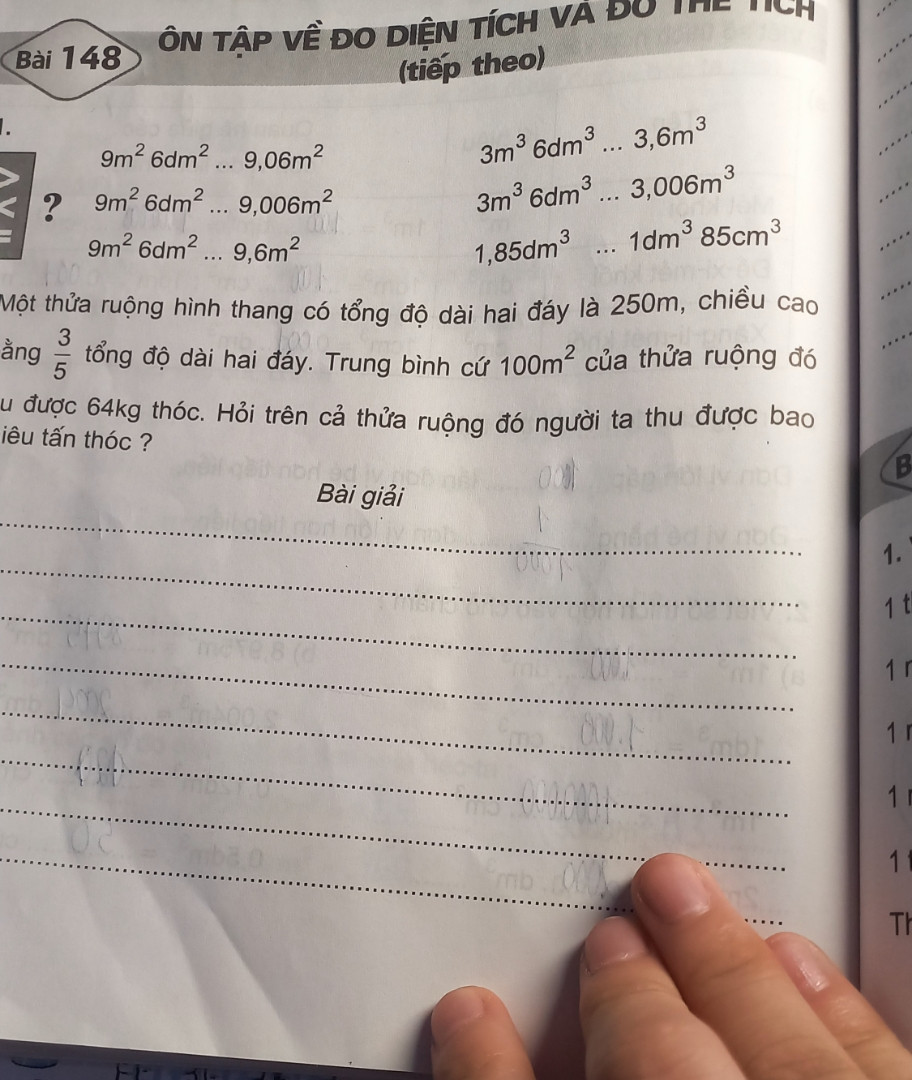 Bài 148
ÔN TẬP VỀ ĐO DIỆN TÍCH VÀ ĐO THỂ TÍCH
(tiếp theo)
1.
> < = ?
9m² 6dm² ... 9,06m²
9m² 6dm² ... 9,006m²
9m² 6dm² ... 9,6m²
3m³ 6dm³ ... 3,6m³
3m³ 6dm³ ... 3,006m³
1,85dm³ ... 1dm³ 85cm³
Một thửa ruộng hình thang có tổng độ dài hai đáy là 250m, chiều cao
ằng 3/5 tổng độ dài hai đáy. Trung bình cứ 100m² của thửa ruộng đó
u được 64kg thóc. Hỏi trên cả thửa ruộng đó người ta thu được bao
iêu tấn thóc ?
Bài giải
B
1.
1 t
1
1
1
1